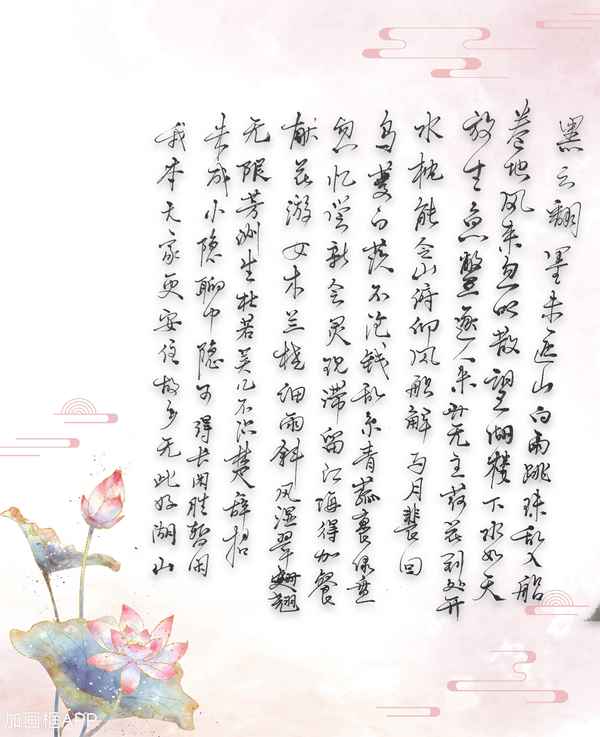 黑云翻墨未遮山白雨跳珠乱入船
卷地风来忽吹散望湖楼下水如天
放生鱼鳖逐人来无主荷花到处开
水枕能令山俯仰风船解与月裴回
乌菱白芡不论钱乱系青菰裹绿
忽忆尝新会灵观滞留江海得加餐
献花游女木兰桡细雨斜风湿翠翘
无限芳洲生杜若吴儿不识楚辞招
未成小隐聊中隐可得长闲胜暂闲
我本无家更安住故乡无此好湖山
加画框APP